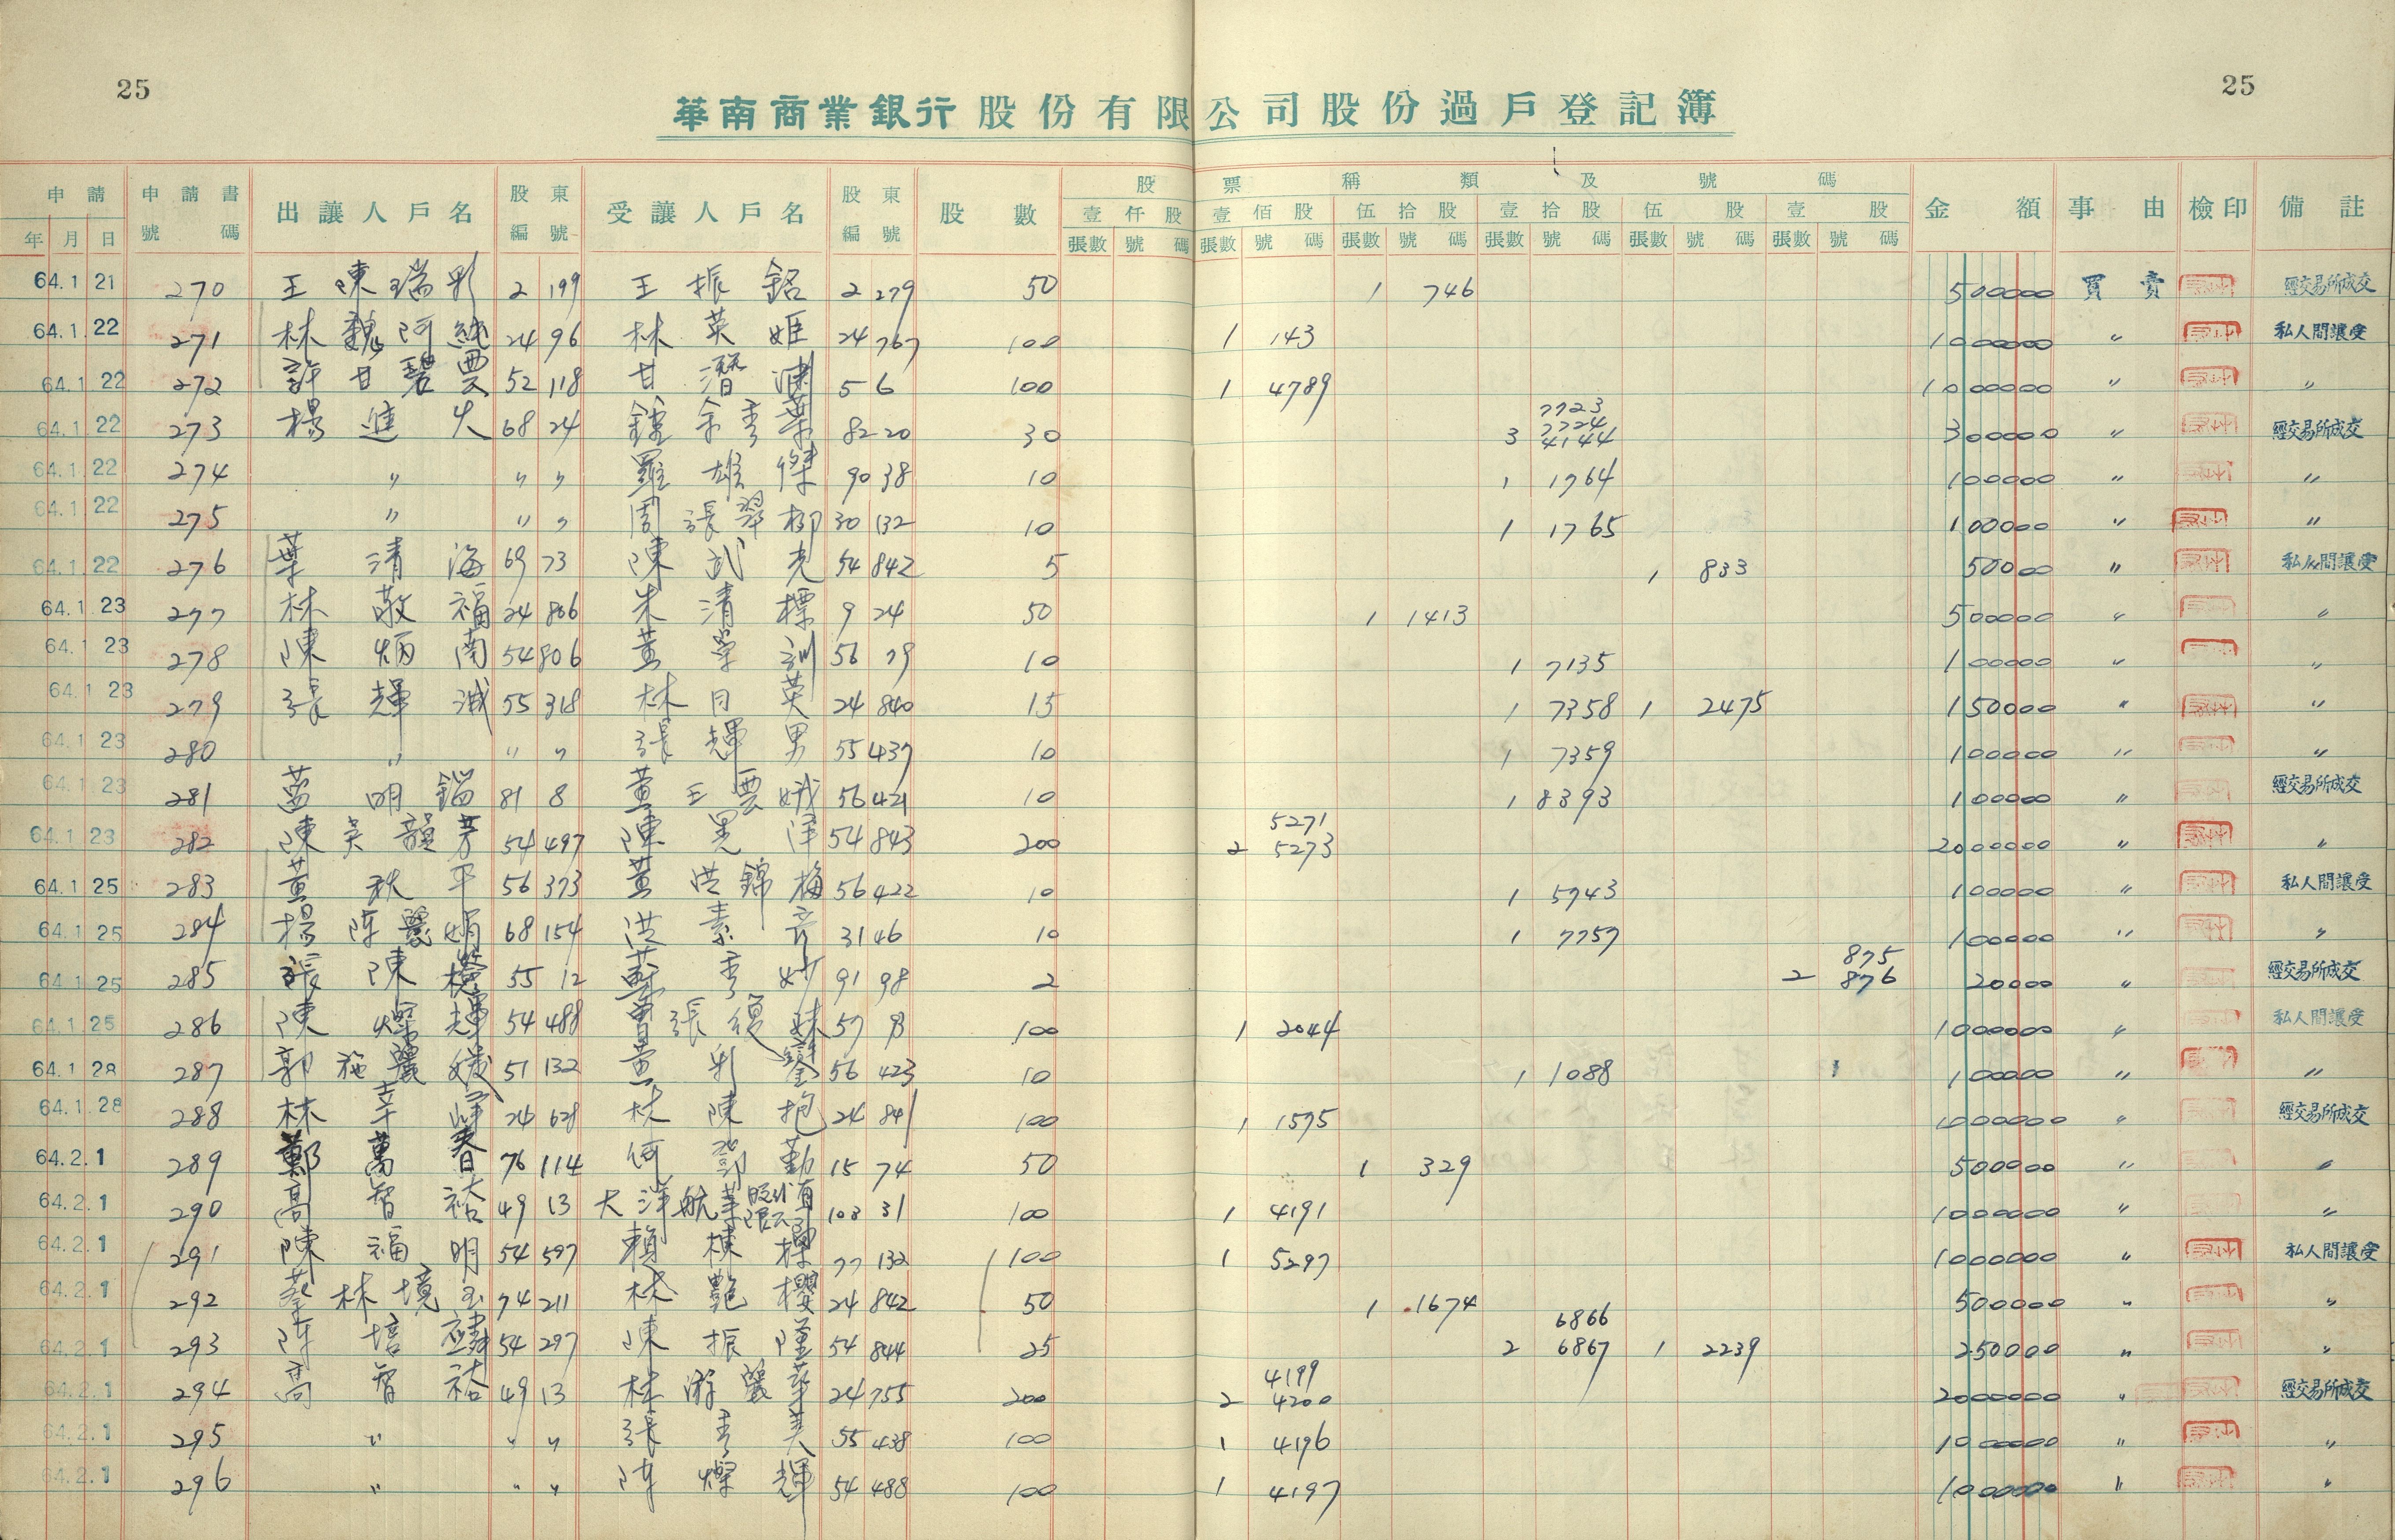 25 25
華南商業銀行股份有限公司股份過戶登記簿
申請 申請書 出讓人戶名 股東 受讓人戶名 股東 股數 股票種類及號碼 金額 事由 檢印 備註
年 月 日 號碼 編號 編號 壹仟股 壹佰股 伍拾股 壹拾股 伍股 壹股
張數 號碼 張數 號碼 張數 號碼 張數 號碼 張數 號碼 張數 號碼
64.1 21 270 王陳瑞彩 2 199 王振銘 2 279 50 1 746 500000 買賣 經交易所成交
64.1.22 271 林魏阿純 24 96 林英姬 24 767 100 1 143 1000000 〃 私人間讓受
64.1 22 272 許甘碧雲 52 118 甘 5 6 100 1 4789 1000000 〃 〃
64.1 22 273 楊進火 68 24 鐘余秀葉 82 20 30 3 7723 7724 4144 300000 〃 經交易所成交
64.1 22 274 〃 〃 〃 羅雄傑 90 38 10 1 1764 100000 〃 〃
64.1 22 275 〃 〃 〃 周張翠柳 30 132 10 1 1765 100000 〃 〃
64.1.22 276 葉清海 69 73 陳武光 54 842 5 1 833 50000 〃 私人間讓受
64.1.23 277 林敬福 24 806 朱清標 9 24 50 1 1413 500000 〃 〃
64.1 23 278 陳炳南 54 806 黃學訓 56 79 10 1 7135 100000 〃 〃
64.1 23 279 張輝誠 55 318 林日英 24 840 15 1 7358 1 2475 150000 〃 〃
64.1 23 280 〃 〃 〃 張輝男 55 437 10 1 7359 100000 〃 〃
64.1 23 281 藍明 81 8 黃王雲娥 56 421 10 1 8393 100000 〃 經交易所成交
64.1 23 282 陳吳韻芳 54 497 陳晃洋 54 843 200 2 5271 5273 2000000 〃 〃
64.1 25 283 黃秋平 56 373 黃洪錦梅 56 422 10 1 5943 100000 〃 私人間讓受
64.1 25 284 楊陳麗娟 68 154 洪素 31 46 10 1 7757 100000 〃 〃
64.1 25 285 張陳 55 12 蘇秀妙 91 98 2 2 875 876 20000 〃 經交易所成交
64.1.25 286 陳燦輝 54 488 曾張 妹 57 93 100 1 2044 1000000 〃 私人間讓受
64.1 28 287 郭施麗媛 51 132 黃利鑾 56 423 10 1 1088 100000 〃 〃
64.1.28 288 林 24 628 林陳抱 24 841 100 1 1595 1000000 〃 經交易所成交
64.2.1 289 鄭萬春 76 114 何鄧勤 15 74 50 1 329 500000 〃 〃
64.2.1 290 高智裕 49 13 大洋航業股份有限公司 103 31 100 1 4191 1000000 〃 〃
64.2.1 291 陳福明 54 597 賴棟 77 132 100 1 5297 1000000 〃 私人間讓受
64.2.1 292 蔡林境玉 74 211 林艷櫻 24 842 50 1 1674 500000 〃 〃
64.2.1 293 陳培麟 54 297 陳振 54 844 25 2 6866 6867 1 2239 250000 〃 〃
64.2.1 294 高智裕 49 13 林游麗華 24 755 200 2 4199 4200 2000000 〃 經交易所成交
64.2.1 295 〃 〃 〃 張秀美 55 438 100 1 4196 1000000 〃 〃
64.2.1 296 〃 〃 〃 陳燦輝 54 488 100 1 4197 1000000 〃 〃